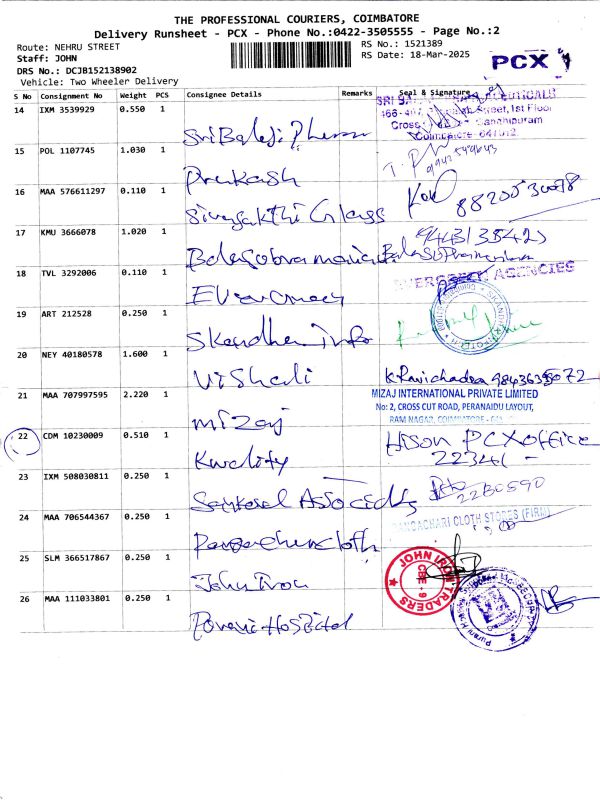 THE PROFESSIONAL COURIERS, COIMBATORE
Delivery Runsheet - PCX - Phone No.:0422-3505555 - Page No.:2
Route: NEHRU STREET
RS No.: 1521389
Staff: JOHN
RS Date: 18-Mar-2025
PCX
DRS No.: DCJB152138902
Vehicle: Two Wheeler Delivery
S No Consignment No Weight PCS Consignee Details Remarks Seal & Signature
14 IXM 3539929 0.550 1 Sri Balaji Pharma
Street, 1st Floor
Cross Gandhipuram
Coimbatore - 641012
15 POL 1107745 1.030 1 Prakash
16 MAA 576611297 0.110 1 Sivasakthi Glass
17 KMU 3666078 1.020 1 Balasubramania
18 TVL 3292006 0.110 1
EVERGREEN AGENCIES
19 ART 212528 0.250 1 Skandha Info
20 NEY 40180578 1.600 1 Vishali
K Ravichadra
21 MAA 707997595 2.220 1 mizaj
MIZAJ INTERNATIONAL PRIVATE LIMITED
No: 2, CROSS CUT ROAD, PERANAIDU LAYOUT,
RAM NAGAR, COIMBATORE
22 CDM 10230009 0.510 1 Kwality
PCX office
22341
23 IXM 508030811 0.250 1 Santosel Associates
24 MAA 706544367 0.250 1 Rangachari cloth
RANGACHARI CLOTH STORES (FIRM)
25 SLM 366517867 0.250 1 John Iron
JOHN IRON TRADERS
CBE - 9
26 MAA 111033801 0.250 1 Porani Hospital